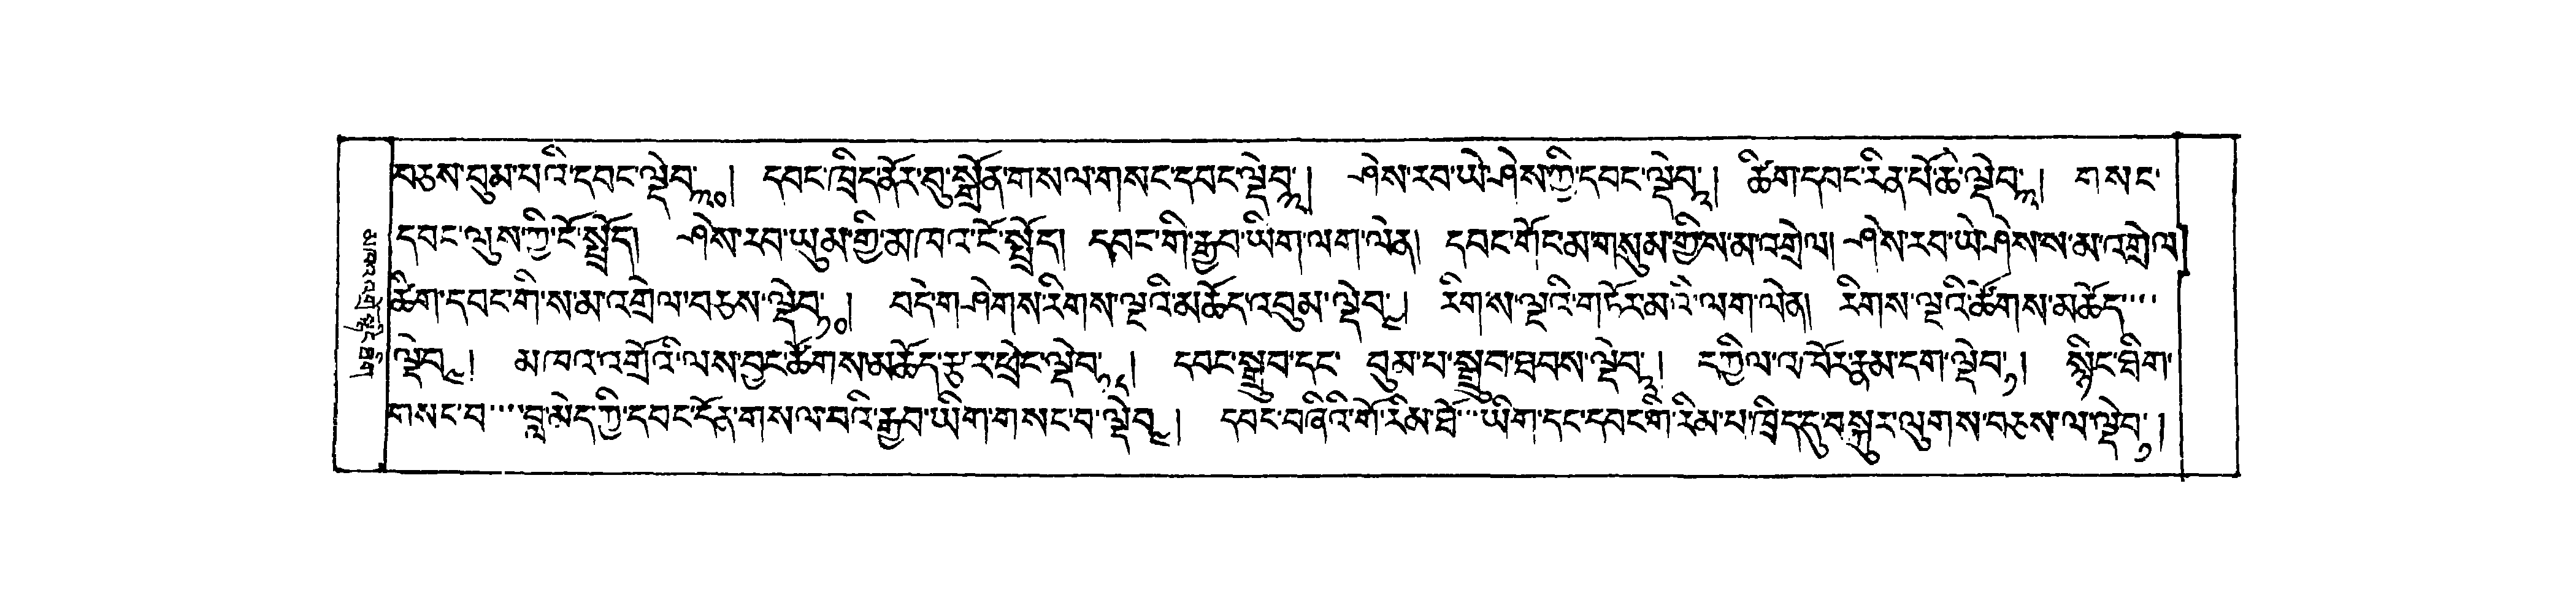 བཅས་བུམ་པའི་དབང་ལྡེབ་༣༠། དབང་ཁྲིད་ནོར་བུ་སྒྲོན་གསལ་གསང་དབང་ལྡེབ་༣། ཤེས་རབ་ཡེ་ཤེས་ཀྱི་དབང་ལྡེབ་༣། ཚིག་དབང་རིན་པོ་ཆེ་ལྡེབ་༣། གསང་
དབང་ལུས་ཀྱི་ངོ་སྤྲོད། ཤེས་རབ་ཡུམ་གྱི་མཁའ་ངོ་སྤྲོད། དབང་གི་རྒྱབ་ཡིག་ལག་ལེན། དབང་གོང་མ་གསུམ་གྱིས་མ་འགྲེལ། ཤེས་རབ་ཡེ་ཤེས་ས་མ་འགྲེལ།
ཚིག་དབང་གི་ས་མ་འགྲེལ་བཅས་ལྡེབ་༡༠། བདེ་གཤེགས་རིགས་ལྔའི་མཆོད་འབུམ་ལྡེབ་༤། རིགས་ལྔའི་གཏོར་མའི་ལག་ལེན། རིགས་ལྔའི་ཚོགས་མཆོད་
ལྡེབ་༤། མཁའ་འགྲོའི་ལས་བྱང་ཚོགས་མཆོད་ཟུར་ཕྲེང་ལྡེབ་༡༨། དབང་སྒྲུབ་དང་ བུམ་པ་སྒྲུབ་ཐབས་ལྡེབ་༢། དཀྱིལ་འཁོར་རྣམ་དག་ལྡེབ་༡། སྙིང་ཐིག་
གསང་བ་བླ་མེད་ཀྱི་དབང་དོན་གསལ་བའི་རྒྱབ་ཡིག་གསང་བ་ལྡེབ་༤། དབང་བཞིའི་གོ་རིམ་ཐོ་ཡིག་དང་དབང་གི་རིམ་པ་ཁྲིད་དུ་བསྐུར་ལུགས་བཅས་ལ་ལྡེབ་༡།